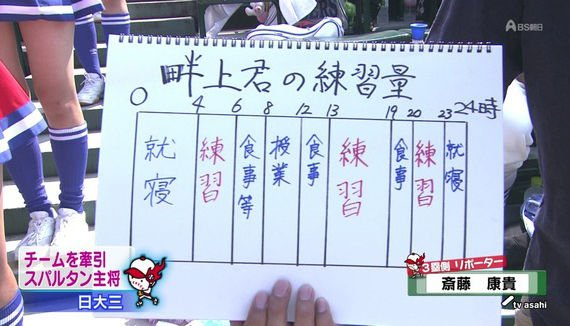 BS朝日
畔上君の練習量
0 4 6 8 12 13 19 20 23 24時
就寝 練習 食事等 授業 食事 練習 食事 練習 就寝
チームを牽引
スパルタン主将
日大三
3塁側 リポーター
斎藤 康貴
tv asahi